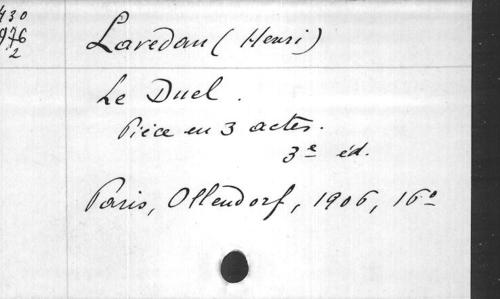 430
976
2
Laredan (Henri)
Le Duel.
Pièce en 3 actes.
3e éd.
Paris, Ollendorf, 1906, 16o